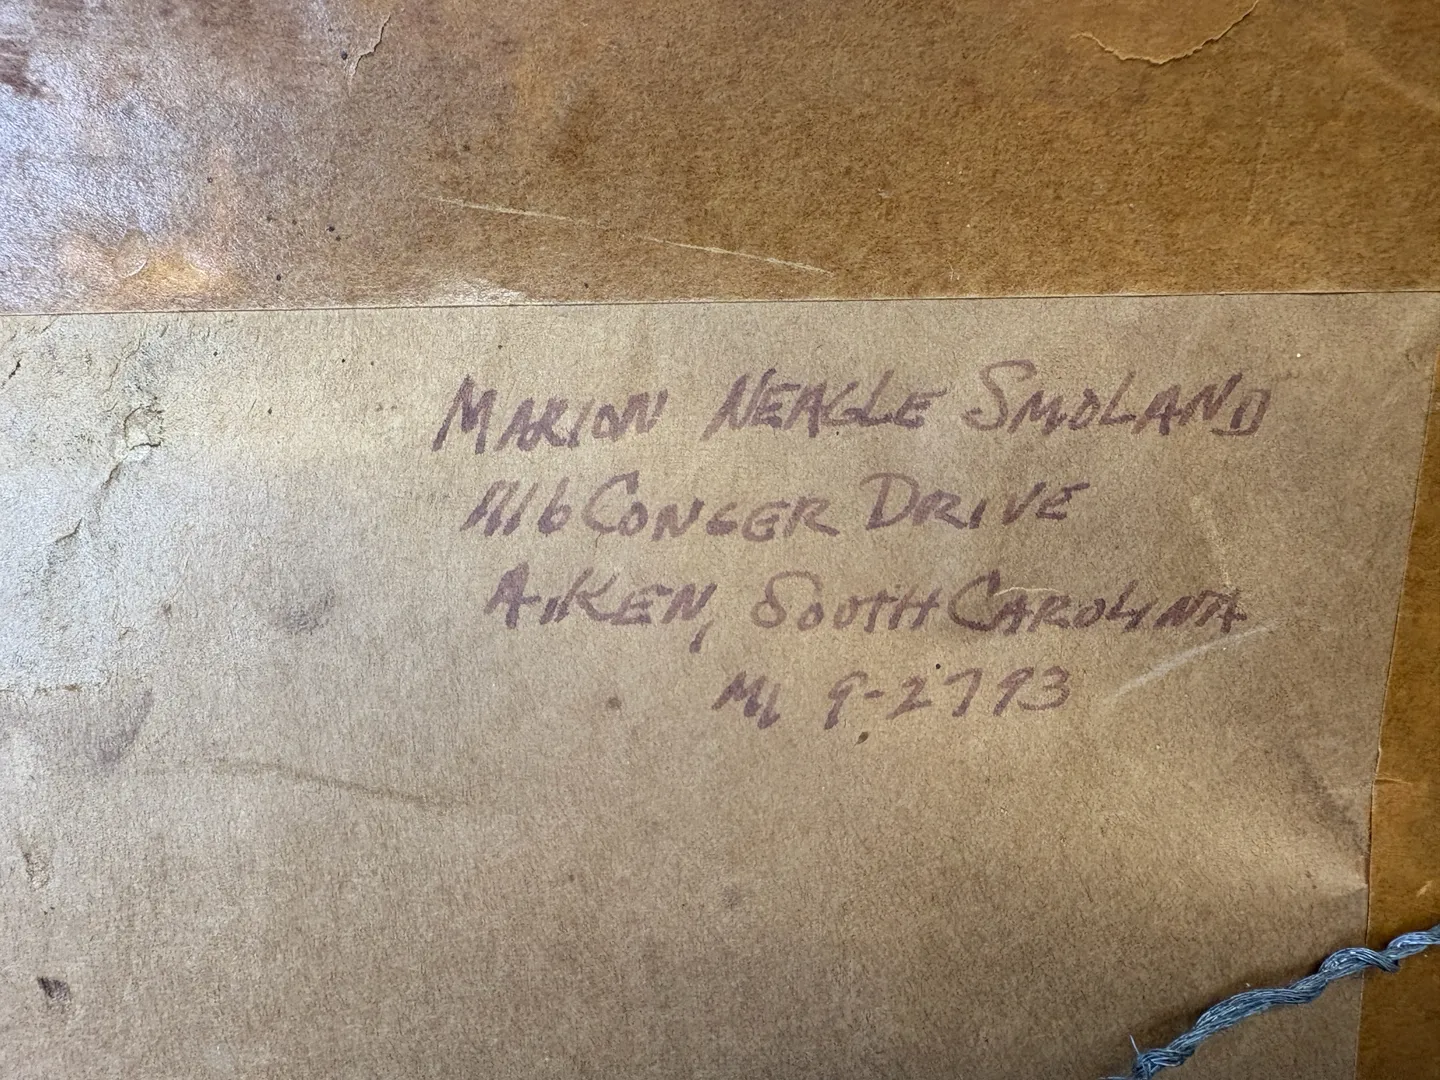 MARION NEAGLE SMOLAND
1116 CONGER DRIVE
AIKEN, SOUTH CAROLINA
MI 9-2793